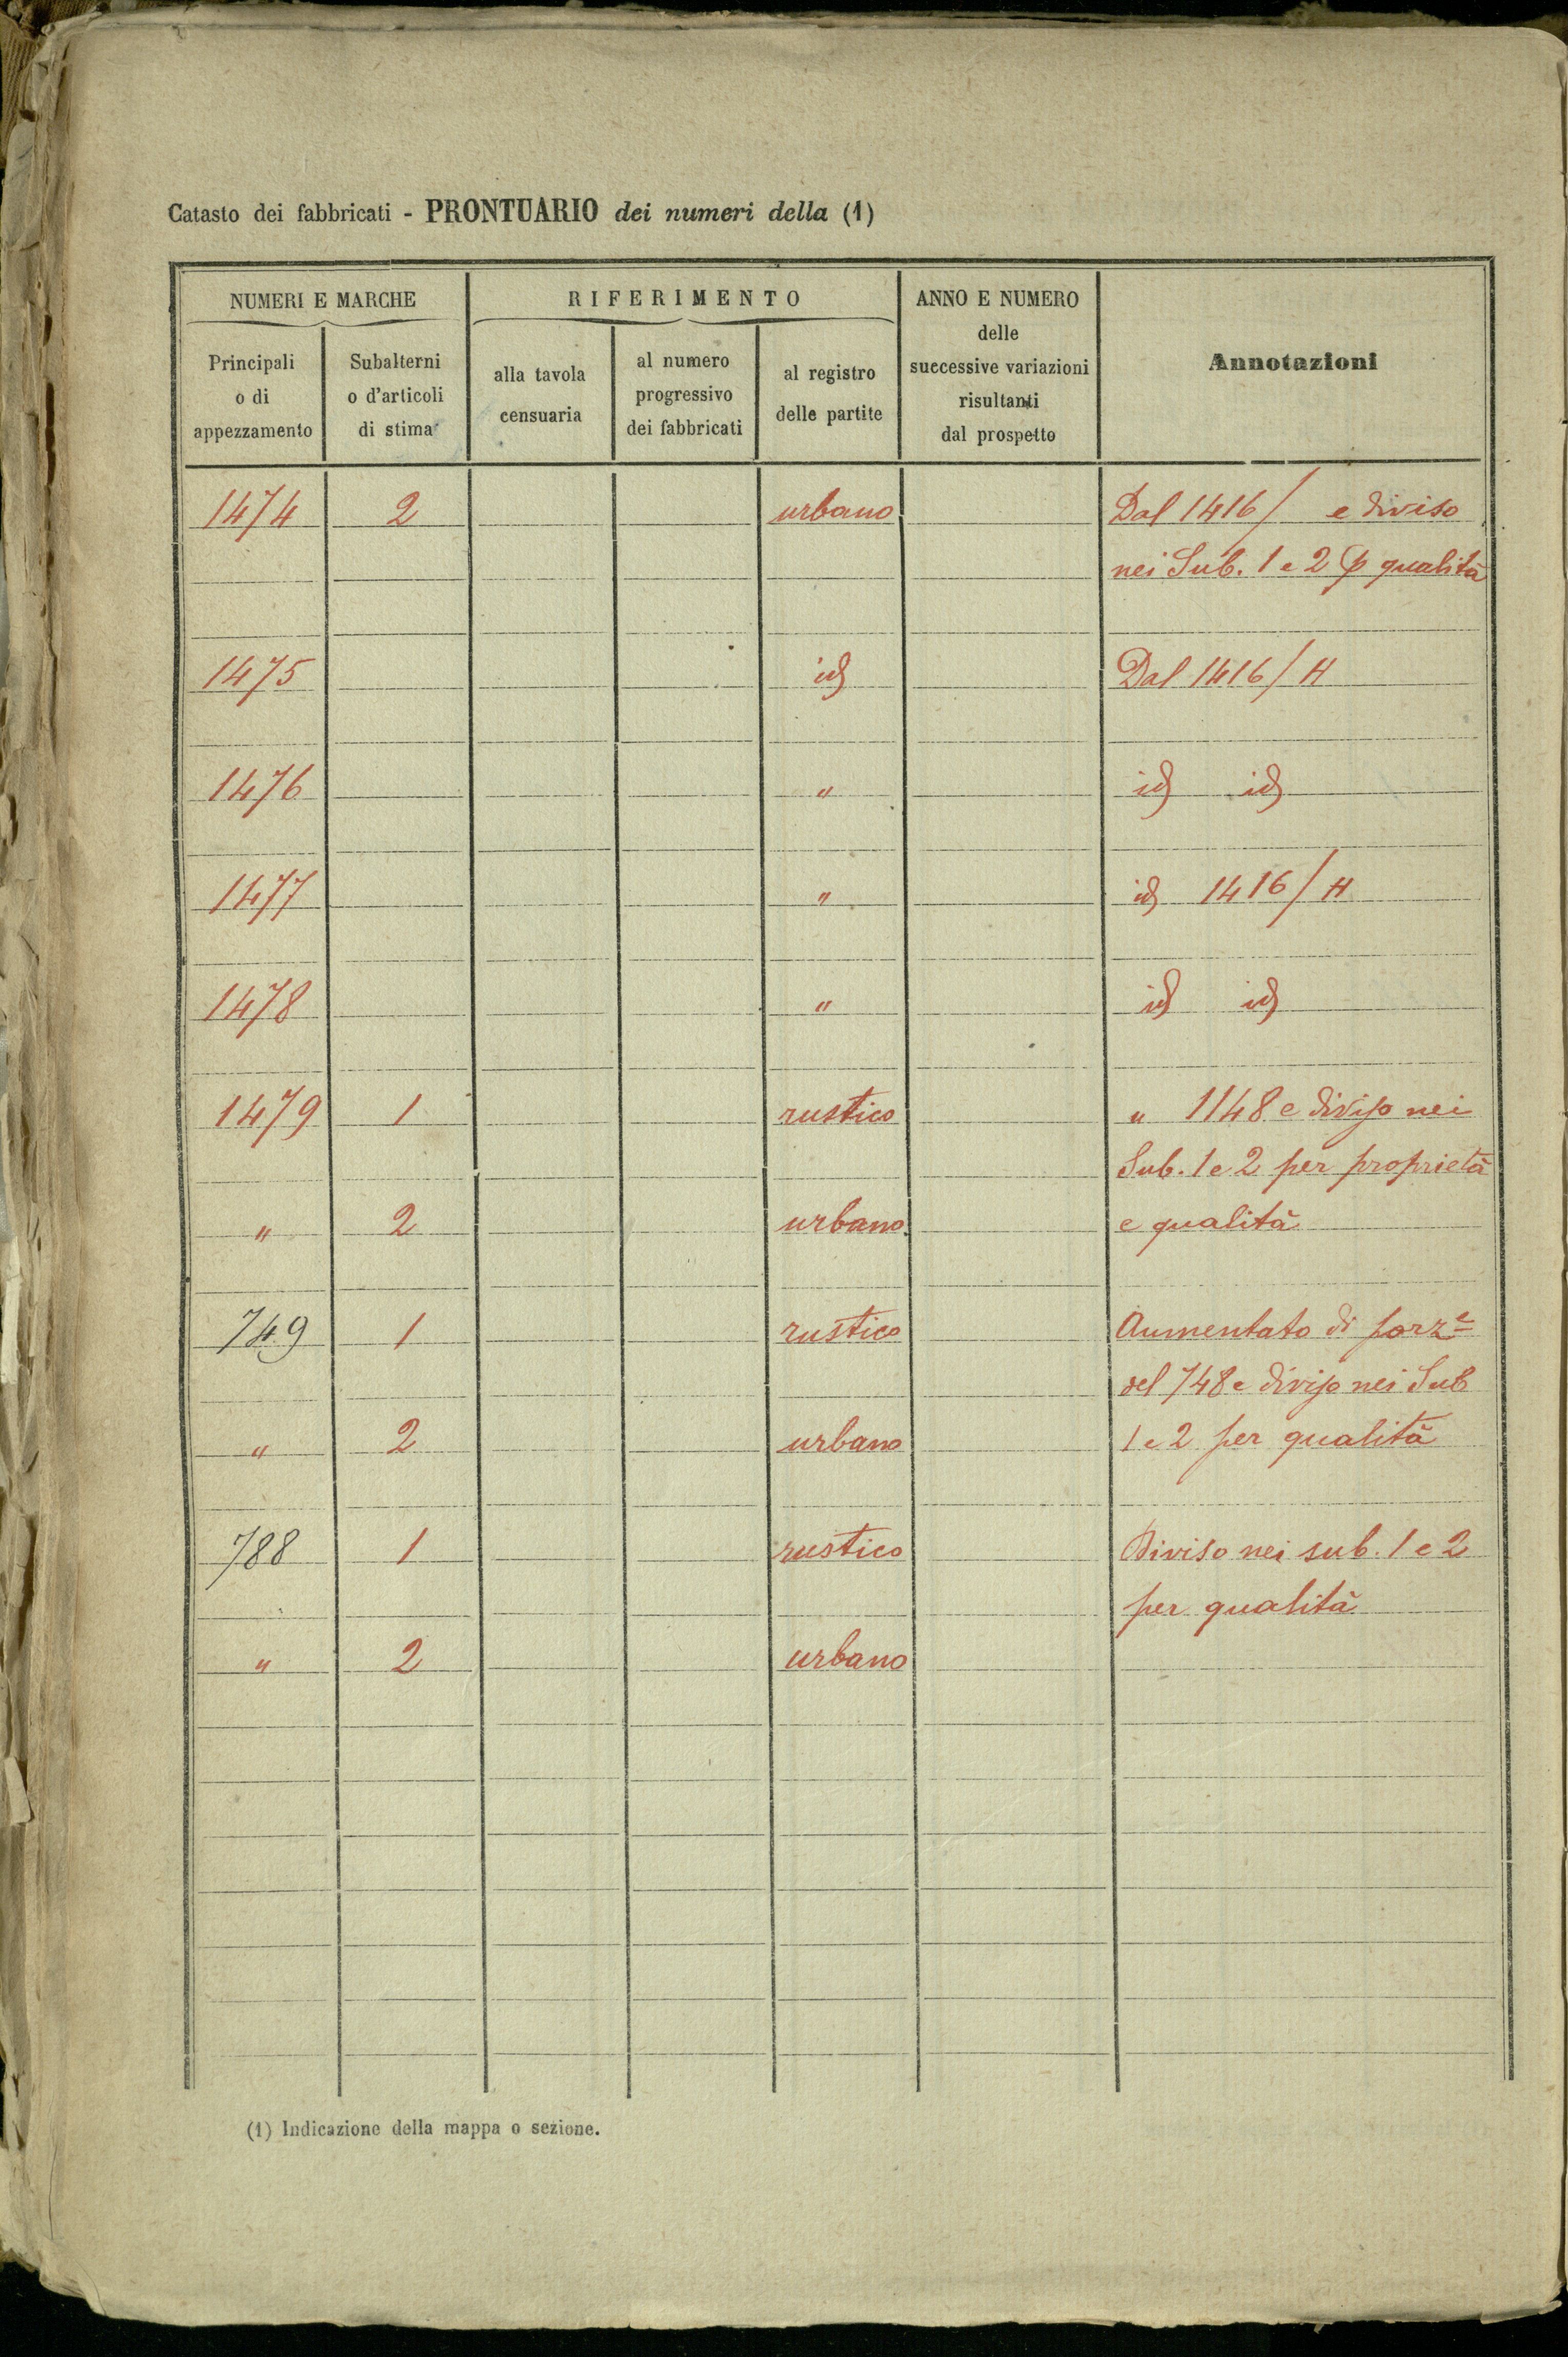 Catasto dei fabbricati - PRONTUARIO dei numeri della (1)
NUMERI E MARCHE
RIFERIMENTO
ANNO E NUMERO
delle
successive variazioni
risultanti
dal prospetto
Annotazioni
Principali
o di
appezzamento
Subalterni
o d'articoli
di stima
alla tavola
censuaria
al numero
progressivo
dei fabbricati
al registro
delle partite
1474 2 urbano Dal 1416/ e diviso
nei Sub. 1 e 2 p qualità
1475 id Dal 1416/H
1476 " id id
1477 " id 1416/H
1478 " id id
1479 1 rustico " 1148 e diviso nei
Sub. 1 e 2 per proprietà
" 2 urbano e qualità
749 1 rustico Aumentato di porze
del 748 e diviso nei Sub
" 2 urbano 1 e 2 per qualità
788 1 rustico Diviso nei sub. 1 e 2
per qualità
" 2 urbano
(1) Indicazione della mappa o sezione.